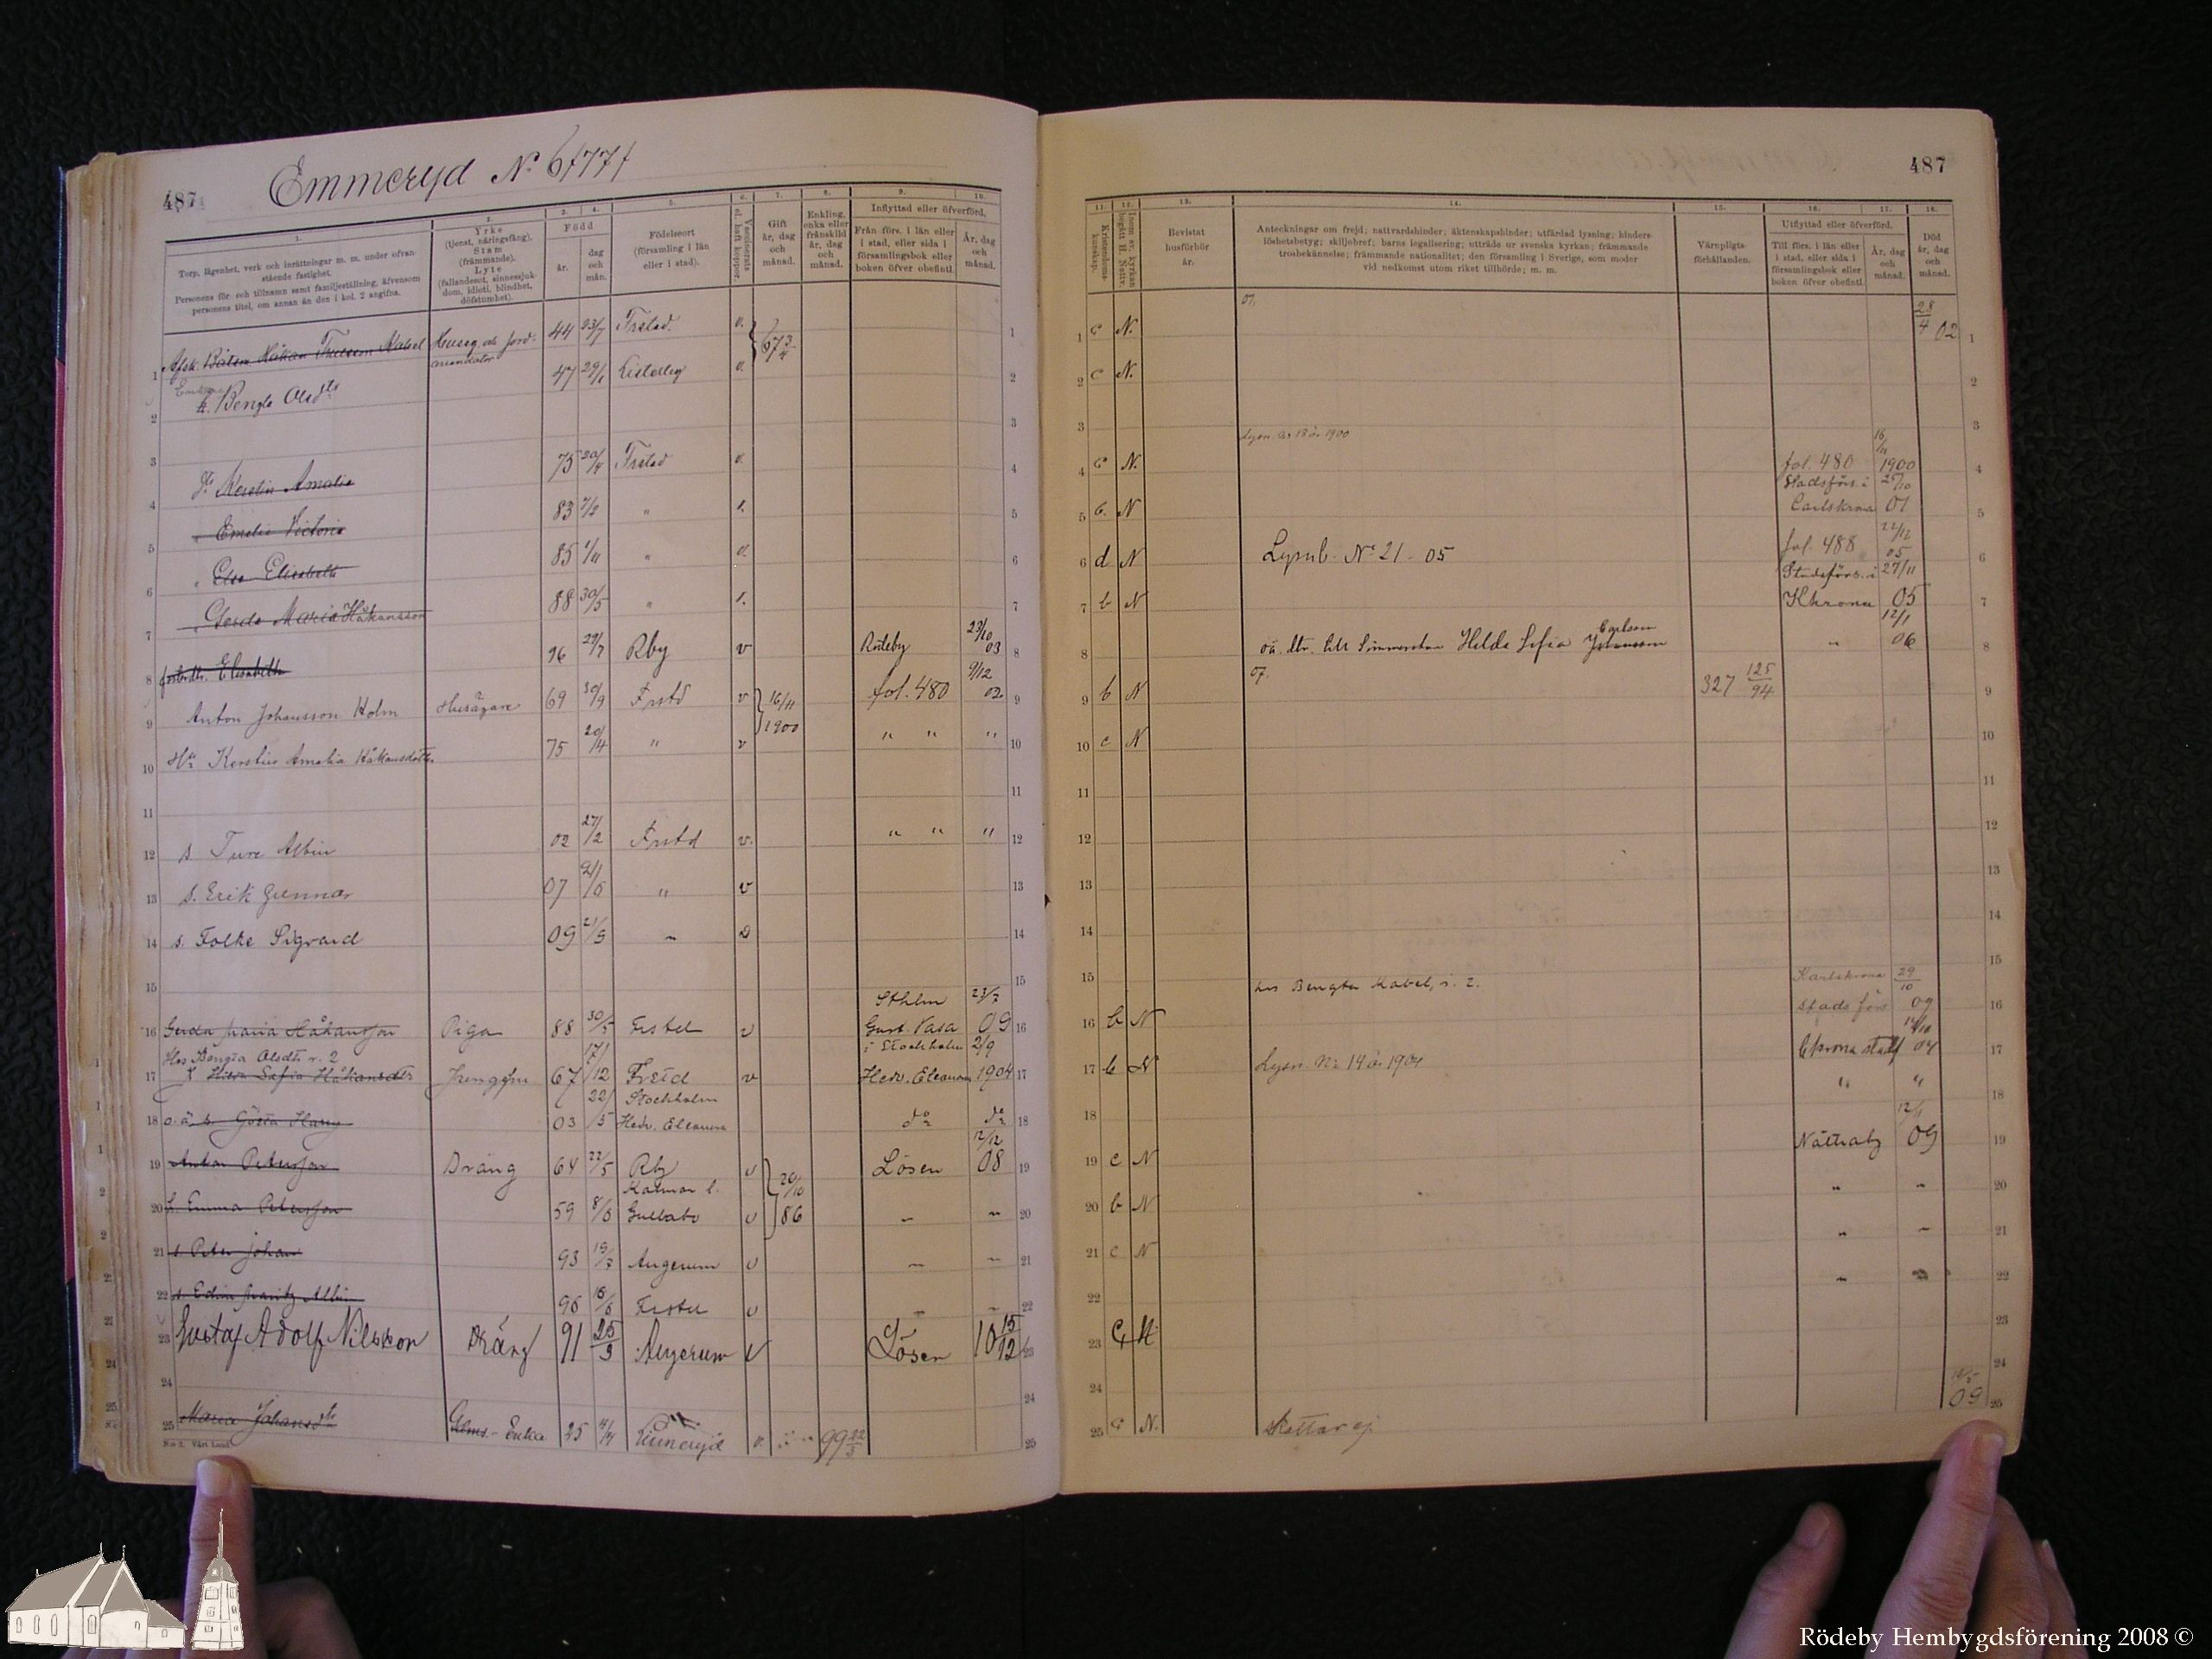 487
Emmeryd No 6/771
1.
2.
3.
4.
5.
6.
7.
8.
9.
10.
Torp, lägenhet, verk och inrättningar m. m. under ofvanstående fastighet.
Personens för- och tillnamn samt familjeställning, äfvensom personens titel, om annan än den i kol. 2 angifna.
Yrke
(tjenst, näringsfång).
Stam
(främmande).
Lyte
(fallandesot, sinnessjukdom, idioti, blindhet, döfstumhet).
Född
år.
dag och mån.
Födelseort
(församling i län eller i stad).
Vaccinerats el. haft koppor.
Gift
år, dag och månad.
Enkling, enka eller frånskild år, dag och månad.
Inflyttad eller öfverförd.
Från förs. i län eller i stad, eller sida i församlingsbok eller boken öfver obefintl.
År, dag och månad.
1 Afsk. Båtsm. Håkan Kabel Huseg. och Jord- arrendator 44 23/7 Frstad. v. 67
2 Enka h. Bengta Olsdtr 47 29/1 Listerby v.
3
4 Kerstin Amalia 75 20/4 Frstad v.
5 Emelie Victoria 83 "
6 " Elsa Elisabeth 85 " v.
7 " Gerda Maria Håkansson 88 30/5 "
8 Elisabeth 96 29/7 Rby v Rödeby 23/10 03
9 Anton Johansson Holm Husägare 69 30/9 Frstd v 16/11 1900 fol. 480 9/12 02
10 Hu Kerstin Amalia Håkansdotter 75 20/4 " v " " "
11
12 s. Ture Albin 02 27/2 Frstd v. " " "
13 s. Erik Gunnar 07 " v
14 s. Folke Sigvard 09 21/9 " v
15
16 Gerda Maria Håkansson Piga 88 30/5 Frstd v Sthlm Gust. Vasa 23/7 09
Hos Bengta Olsdtr r. 2
17 Hilda Sofia Håkansdtr 67 17/12 Frstd v i Stockholm Hedv. Eleonora 2/9 1904
18 o.ä. s. Gösta Harry 03 22/5 Stockholm Hedv. Eleonora do do
19 Anton Petersson Dräng 64 22/5 Rby v 26/10 86 Lösen 12/12 08
20 h. Emma Petersson 59 8/6 Kalmar l. Gullabo v
21 s. Peter Johan 93 19/7 Augerum v
22 s. Edvin Albin 96 Frstd v
23 Gustaf Adolf Nilsson Dräng 91 25/3 Augerum v Lösen 10 15/12
24
25 Maria Johansdtr Enka 25 4/4 v. 99 22/3
N:o 2. Vårt Land.
487
11.
12.
13.
14.
15.
16.
17.
18.
Kristendomskunskap.
Inom sv. kyrkan begått H. Nattv.
Bevistat husförhör år.
Anteckningar om frejd; nattvardshinder; äktenskapshinder; utfärdad lysning; hinderslöshetsbetyg; skiljobref; barns legalisering; utträde ur svenska kyrkan; främmande trosbekännelse; främmande nationalitet; den församling i Sverige, som moder vid nedkomst utom riket tillhörde; m. m.
Värnpligtsförhållanden.
Utflyttad eller öfverförd.
Till förs. i län eller i stad, eller sida i församlingsbok eller boken öfver obefintl.
År, dag och månad.
Död år, dag och månad.
1 c N. 28/4 02
2 c N.
3
4 c N. Lysn. 18 år 1900 fol. 480 16/11 1900
5 b. N Stadsförs. i Carlskrona 01
6 d N Lysnb. No 21 - 05 fol. 488 05
7 b N Stadsförs. i Khrona 27/11 05
8 oä. dtr. till Hilda Sofia Johansson Carlsson " 12/1 06
9 b N 07. 327 125/94
10 c N
11
12
13
14
15
16 b N hos Bengta Kabel, r. 2. Karlskrona stads förs 29/10 09
17 b N Lysn. No 14 år 1904 Ckrona stadsf 04
18 " "
19 c N Nättraby 12/1 09
20 b N " "
21 c N " "
22 "
23 N
24
25 c N. Skattar ej 09
Rödeby Hembygdsförening 2008 ©